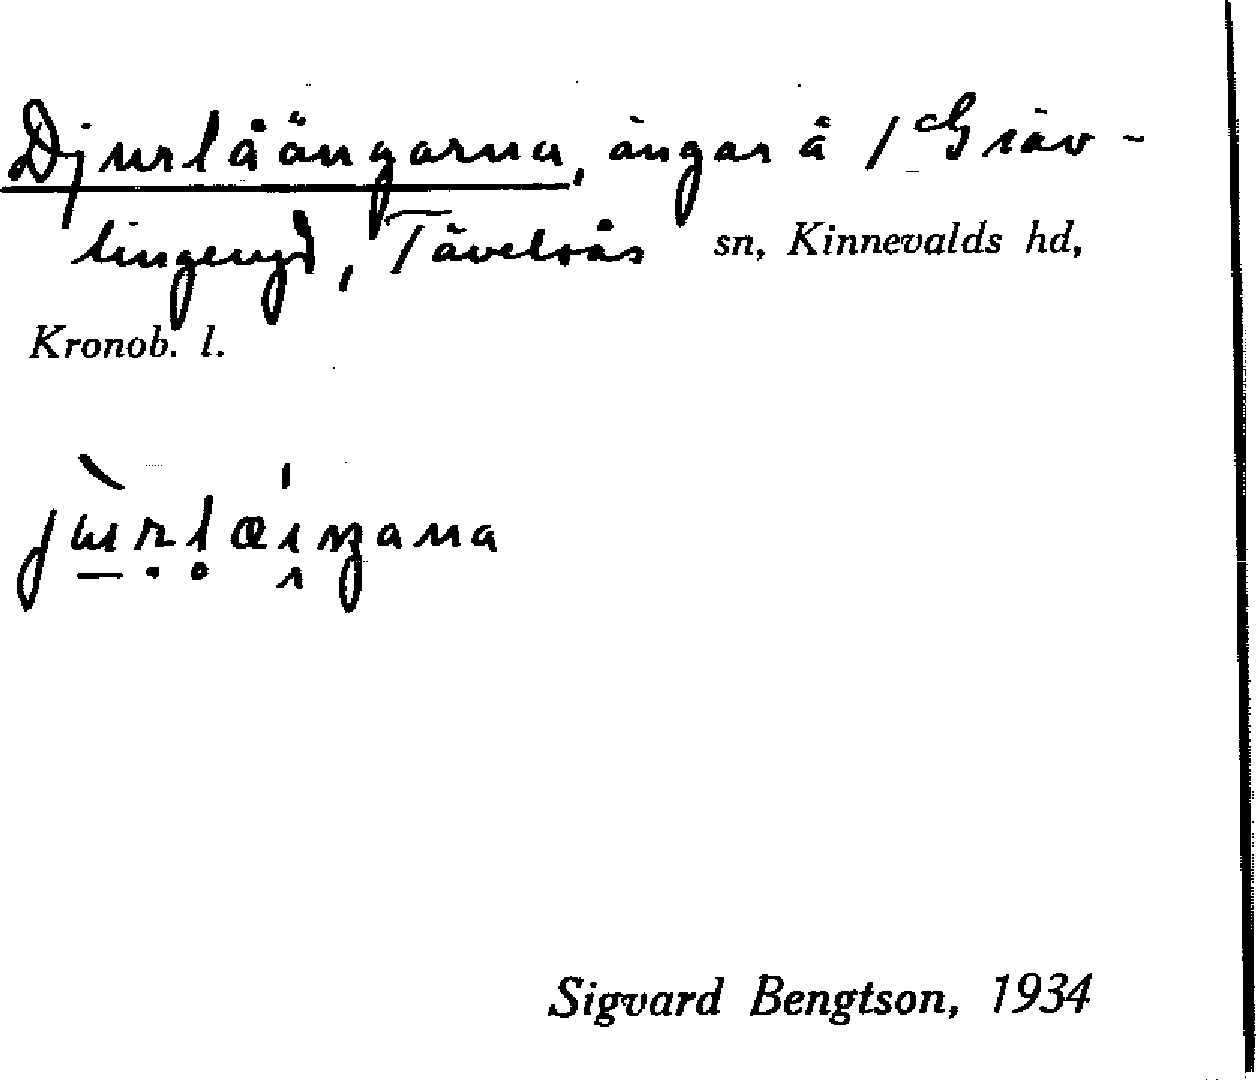 Djurlåängarna, ängar å / Gräv-
lingeryd, Tävelsås sn, Kinnevalds hd,
Kronob. l.
Sigvard Bengtson, 1934